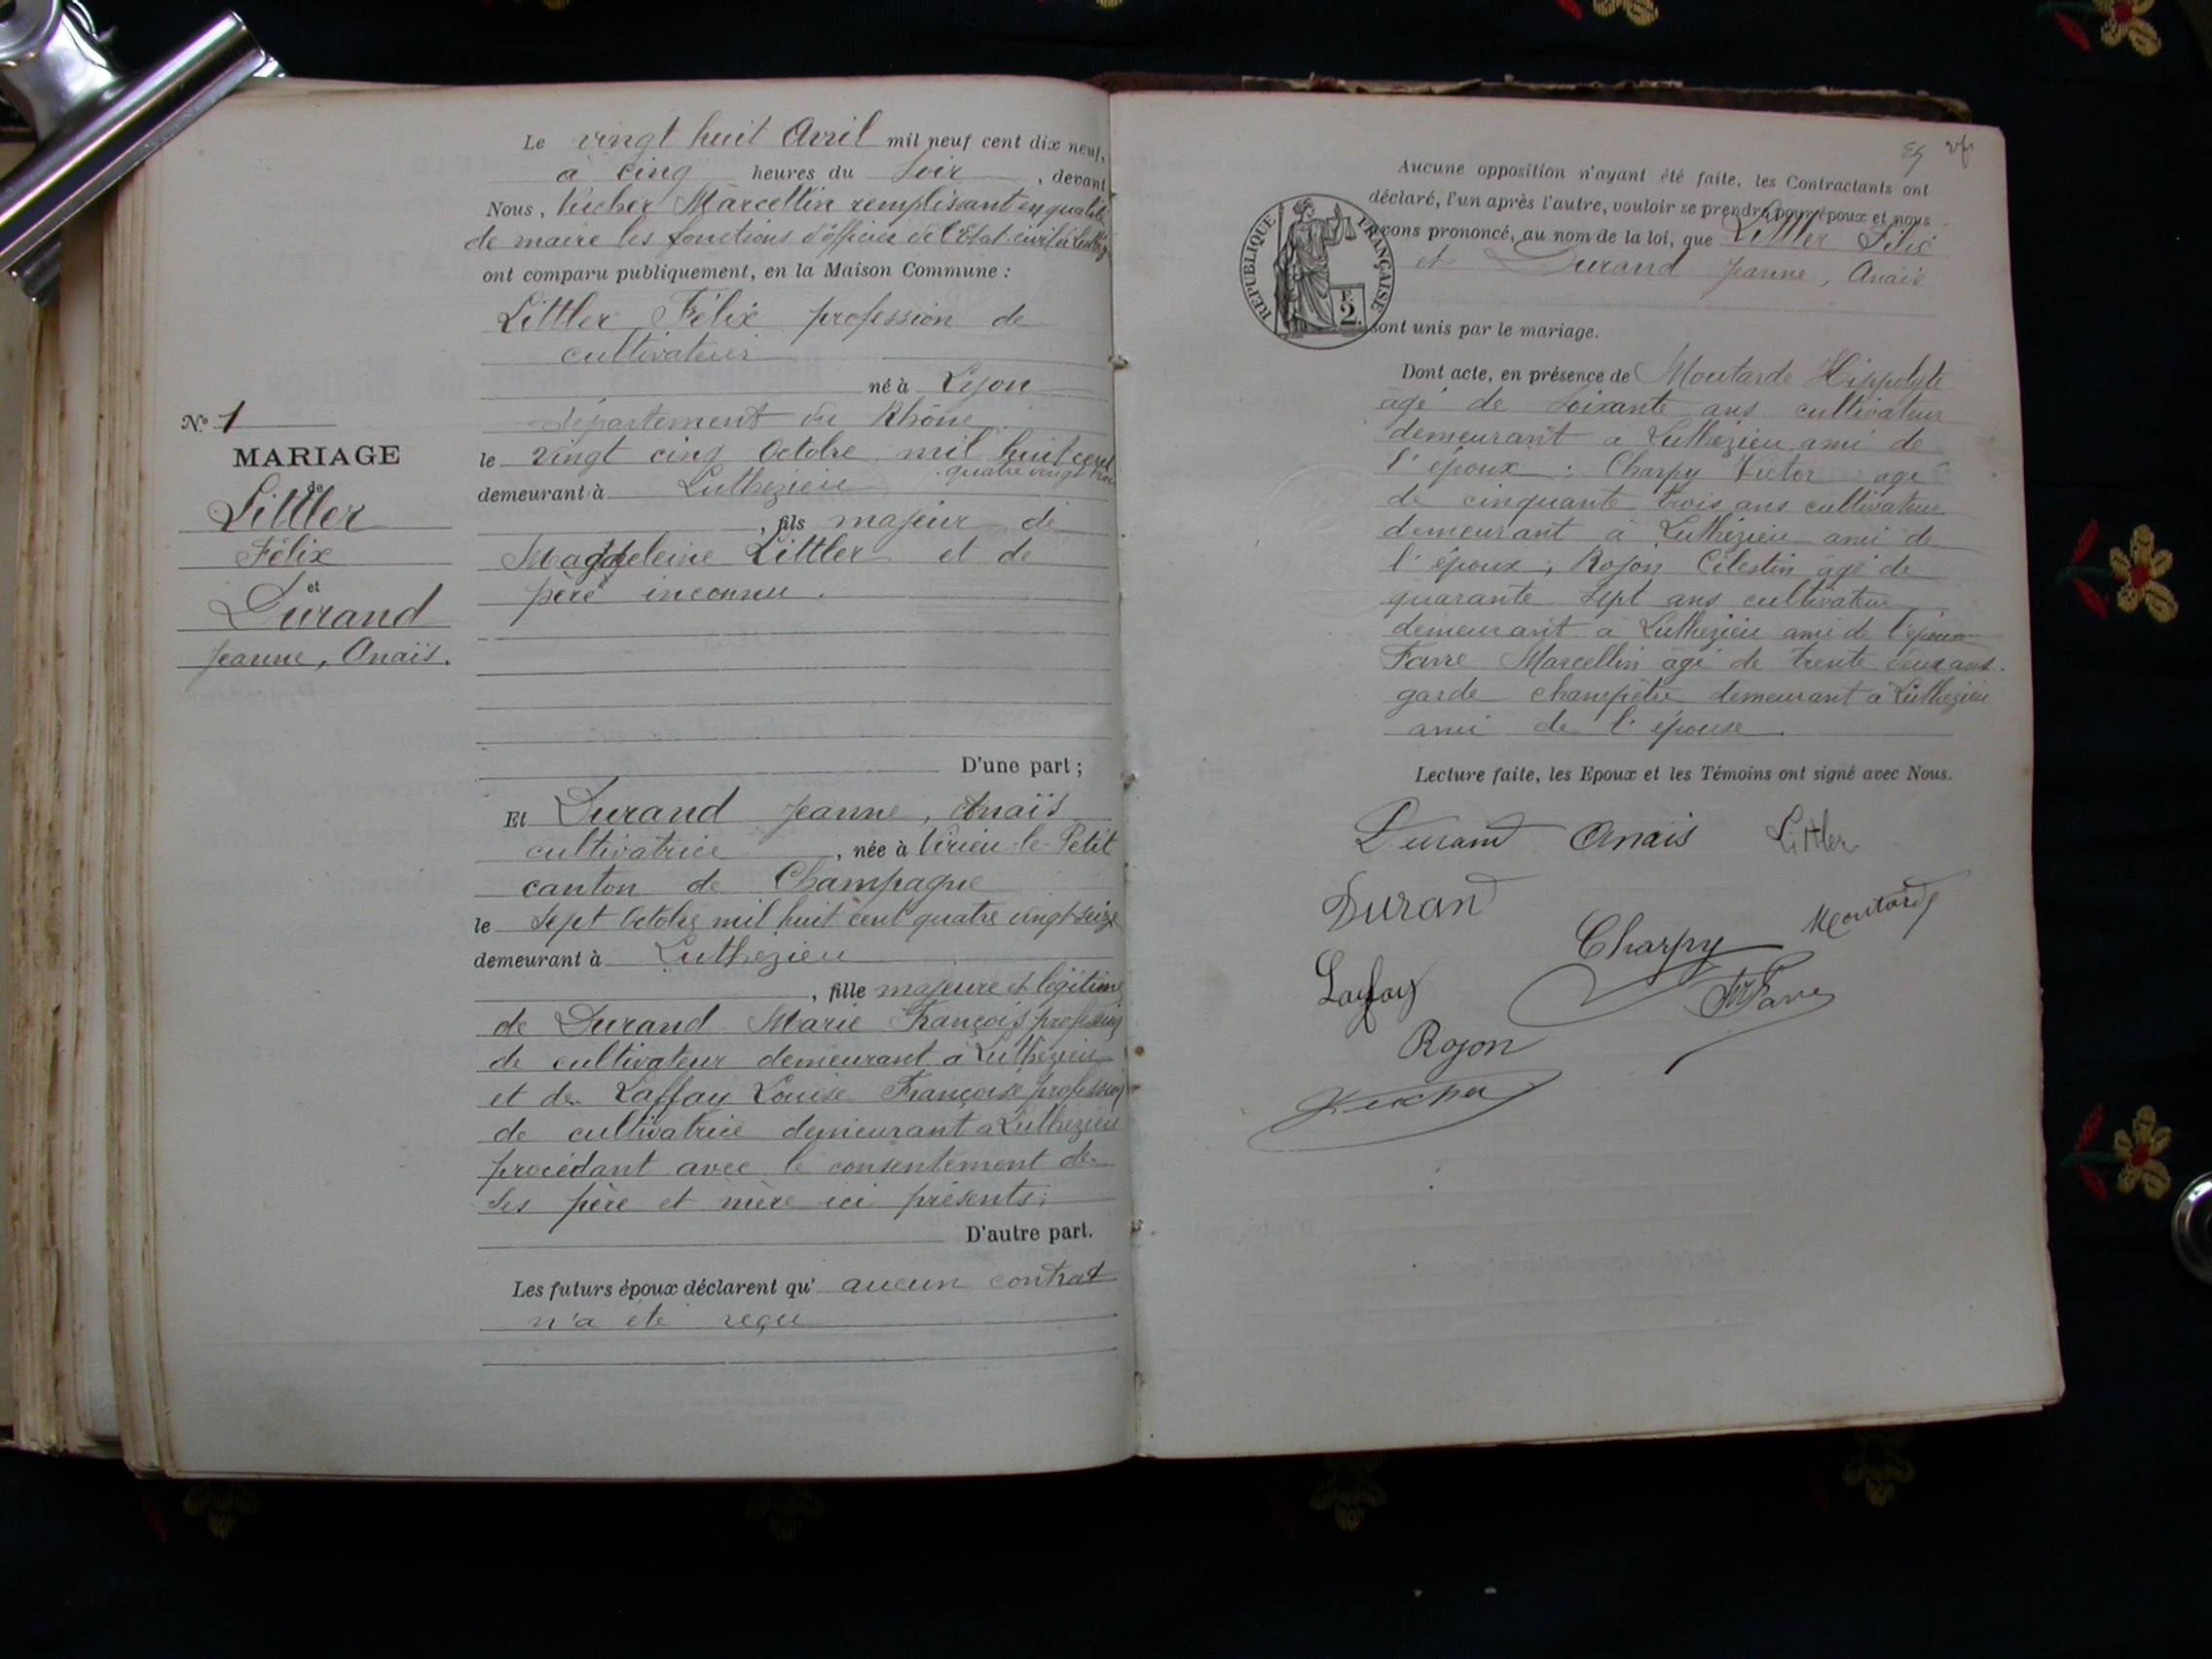 Le vingt huit Avril mil neuf cent dix neuf,
à cinq heures du soir, devant
Nous, Marcellin remplissant en qualité
de maire les fonctions d'officier de l'Etat civil de
ont comparu publiquement, en la Maison Commune :
Littler Félix profession de
cultivateur
né à Lyon
département du Rhône
le vingt cinq Octobre mil huit cent
quatre vingt
demeurant à Luthézieu
, fils majeur de
Magdeleine Littler et de
père inconnu.
D'une part ;
N° 1
MARIAGE
de
Littler
Félix
et
Durand
Jeanne, Anaïs.
Et Durand Jeanne, Anaïs
cultivatrice, née à Virieu-le-Petit
canton de Champagne
le sept Octobre mil huit cent quatre vingt seize
demeurant à Luthezieu
, fille majeure et légitime
de Durand Marie François profession
de cultivateur demeurant à Luthézieu
et de Laffay Louise Françoise profession
de cultivatrice demeurant a Luthezieu
procédant avec le consentement de
ses père et mère ici présents ;
D'autre part.
Les futurs époux déclarent qu' aucun contrat
n'a été reçu
Aucune opposition n'ayant été faite, les Contractants ont
déclaré, l'un après l'autre, vouloir se prendre pour époux et nous
avons prononcé, au nom de la loi, que Littler Félix
et Durand Jeanne, Anaïs
REPUBLIQUE FRANÇAISE
F. 2.
sont unis par le mariage.
Dont acte, en présence de Moutarde Hippolyte
âgé de soixante ans cultivateur
demeurant a Luthézieu ami de
l'époux ; Charpy Victor agé
de cinquante trois ans cultivateur
demeurant à Luthézieu ami de
l'époux ; Rojon Célestin âgé de
quarante sept ans cultivateur
demeurant a Luthezieu ami de l'épouse
Favre Marcellin âgé de trente deux ans.
garde champêtre demeurant à Luthézieu
ami de l'épouse.
Lecture faite, les Epoux et les Témoins ont signé avec Nous.
Durand Anaïs Littler
Durand
Moutarde
Charpy
Laffay
Favre
Rojon